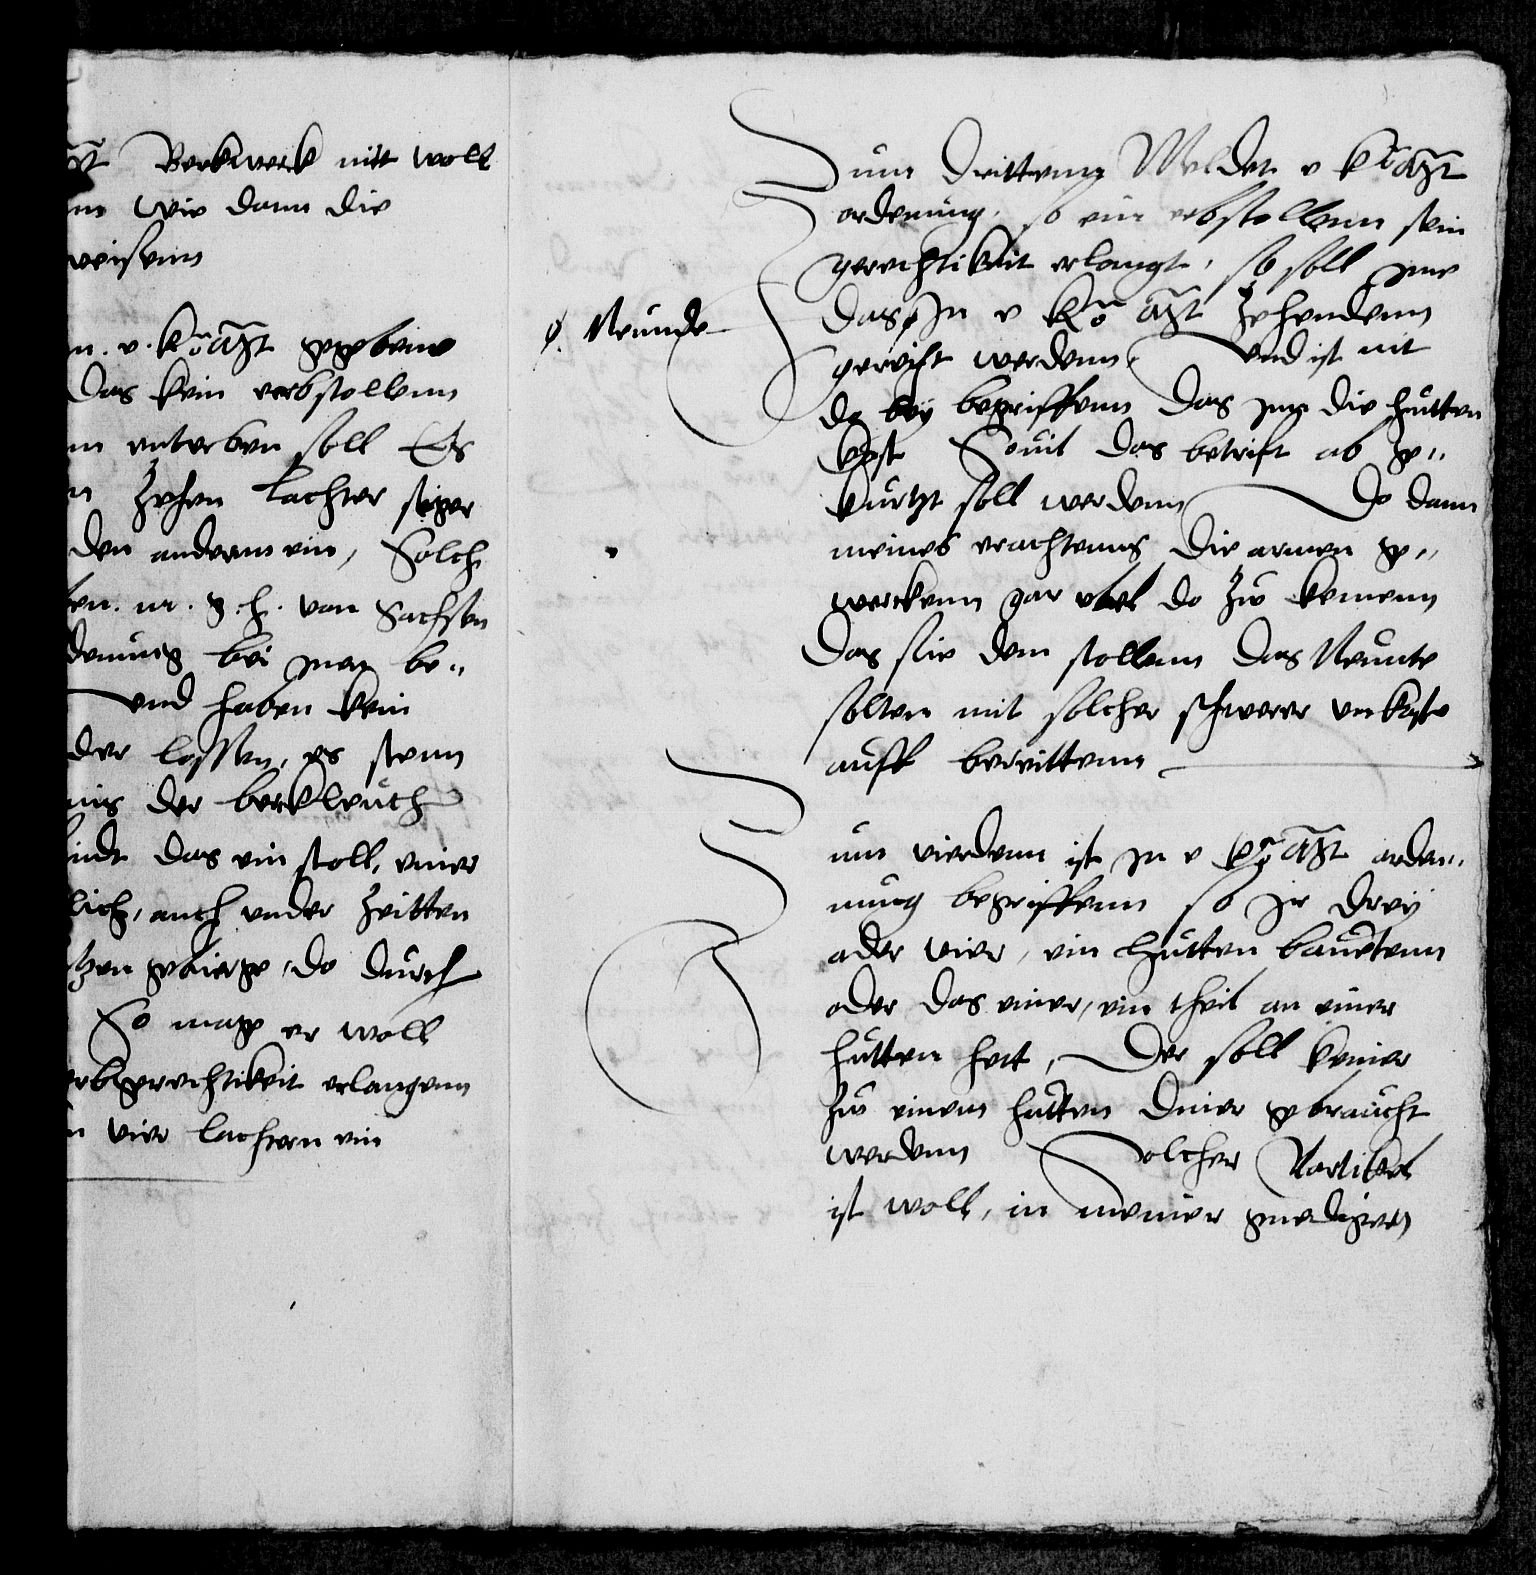 Berkwerk nitt woll
wie dann die
weisenn
n. e. Kö Mat gegebene
das kein erbstollenn
enterben soll Es
n zehen lachter seiger
den andernn ein, Solch
en. m. g. h. von Sachssen
denung bei mer be„
und haben kein
der lossen, es stenn
nis der berckleuth
indt das ein stoll, einer
lich, auch under Zeitten
gebierge, do durch
So mage er woll
erbgerechtikeit erlangenn
n vier lachtern ein
Zum drittenn Meldet e Kö Mat
ordenung, so ein erbstollenn sein
gerechtikeit erlangt, so soll jme
Neunde
das, In e Kö Mat Zehendenn
gereicht werdenn, Und ist nit
do bey begriffenn das jme die hutten
kost Souil das betrift ab ge„
kurtzt soll werdenn Do dann
meines erachtenns die armen ge„
werckenn gar ubel do zw kemenn
das sie dem stollenn das Neunte
solten mit solcher schwerer unkoste
auff bereittenn
Zum vierdenn ist jn e Kö Mat orden„
nung begriffenn so jr drey
oder vier, ein hutten bauetenn
oder das einer, ein theil an einer
hutten hett, Der soll keiner
zw einem hutten diner gebraucht
werdenn Solcher Partikel
ist woll, in meiner gnedigen